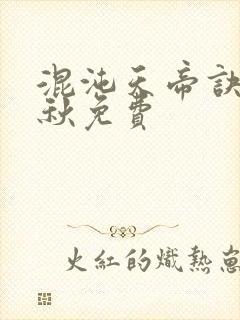 混沌天帝訣
秋免費
火紅的熾熱蔥